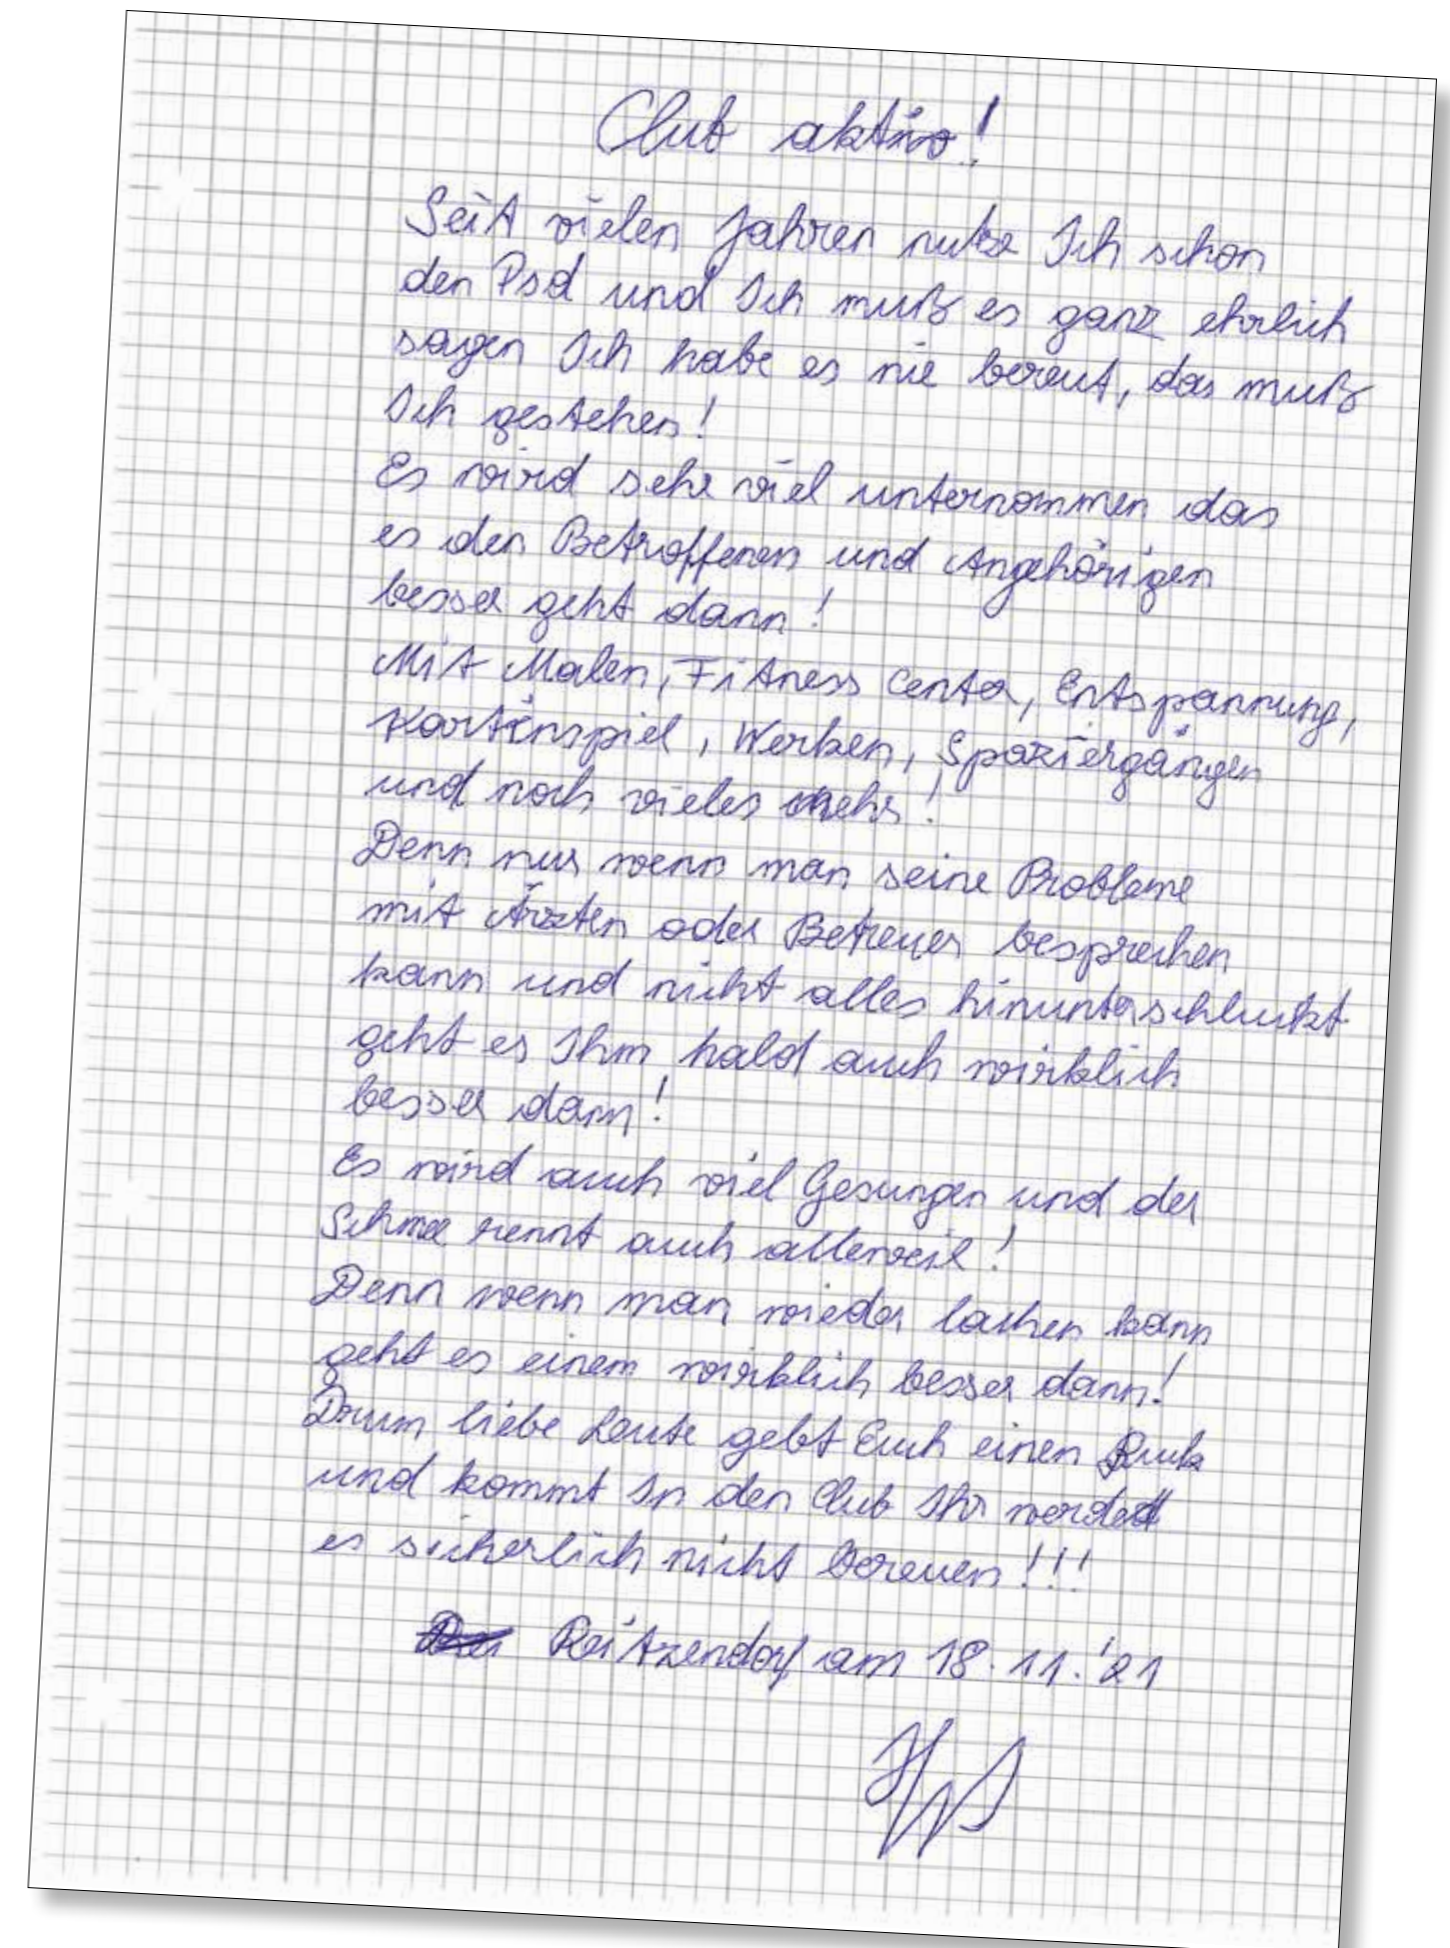 Club aktiv!
Seit vielen Jahren nutze Ich schon
den Psd und Ich muß es ganz ehrlich
sagen Ich habe es nie bereut, das muß
Ich gestehen!
Es wird sehr viel unternommen das
es den Betroffenen und Angehörigen
besser geht dann!
Mit Malen, Fitness Center, Entspannung,
Kartenspiel, Werken, Spaziergängen
und noch vieles mehr!
Denn nur wenn man seine Probleme
mit Ärzten oder Betreuer besprechen
kann und nicht alles hinunterschluckt
geht es Ihm hald auch wirklich
besser dann!
Es wird auch viel Gesungen und der
Schmee rennt auch allerweil!
Denn wenn man wieder lachen kann
geht es einem wirklich besser dann!
Drum liebe Leute gebt Euch einen Ruck
und kommt In den Club Ihr werdet
es sicherlich nicht bereuen!!!
Reitzendorf am 18.11.'21